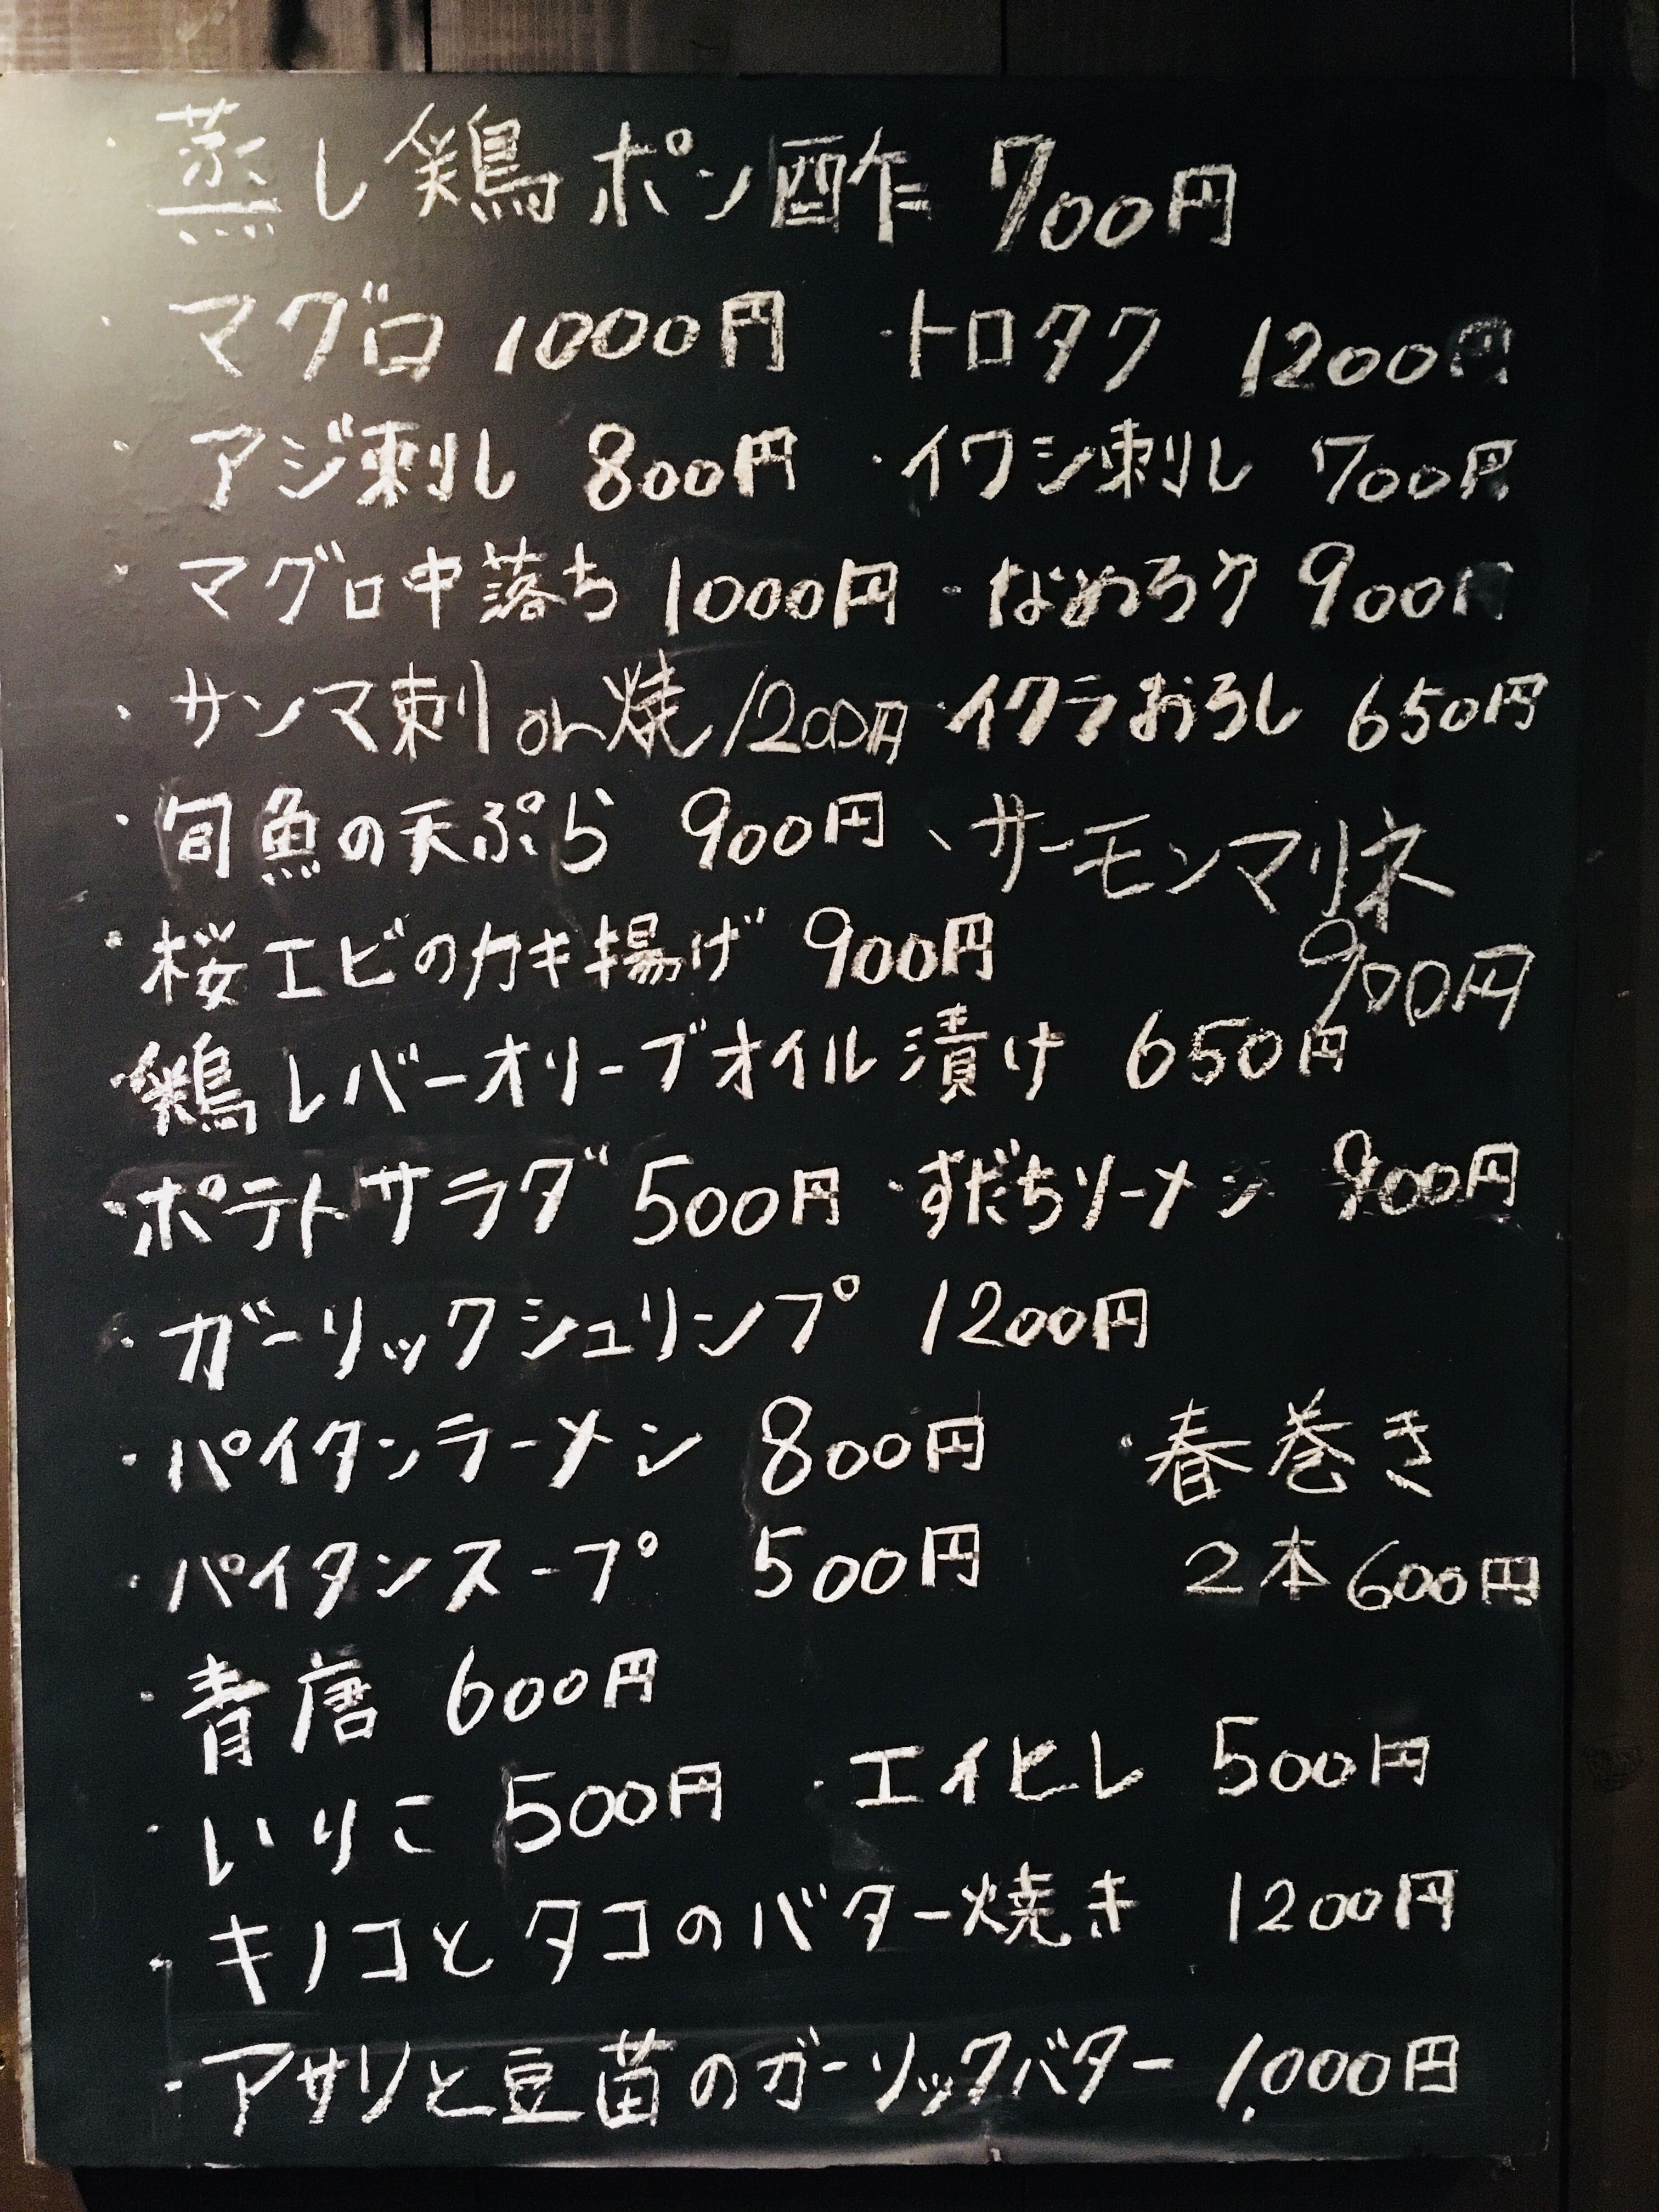 ・蒸し鶏ポン酢 700円
・マグロ 1000円 ・トロタク 1200円
・アジ刺し 800円 ・イワシ刺し 700円
・マグロ中落ち 1000円 ・なめろう 900円
・サンマ刺 or 焼 1200円 ・イクラおろし 650円
・旬魚の天ぷら 900円 、サーモンマリネ
900円
・桜エビのカキ揚げ 900円
・鶏レバーオリーブオイル漬け 650円
・ポテトサラダ 500円 ・すだちソーメン 900円
・ガーリックシュリンプ 1200円
・パイタンラーメン 800円 ・春巻き
2本600円
・パイタンスープ 500円
・青唐 600円
・いりこ 500円 ・エイヒレ 500円
・キノコとタコのバター焼き 1200円
・アサリと豆苗のガーリックバター 1,000円